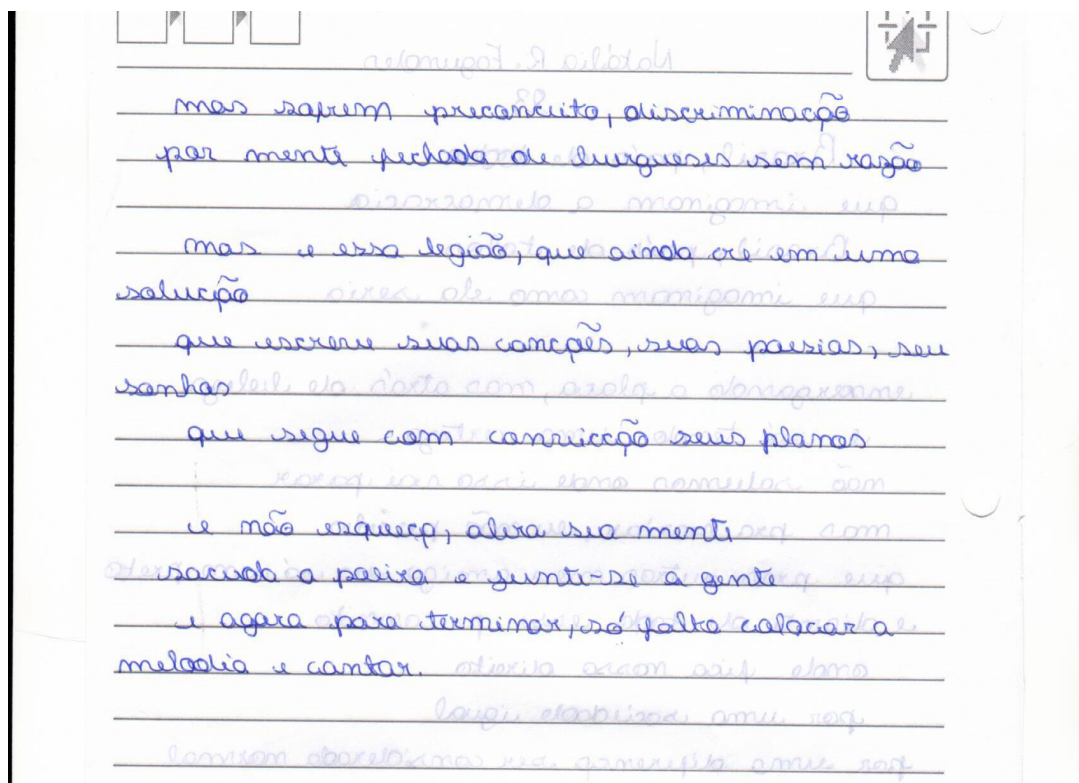 mas sofrem preconceito, discriminação
por mente fechada de burgueses sem razão
mas e essa legião, que ainda cre em uma
solução
que escreve suas canções, suas poesias, seu
sonhos
que segue com convicção seus planos
e não esqueça, abra sua mente
sacuda a poeira e junte-se a gente
e agora para terminar, só falta colocar a
melodia e cantar.